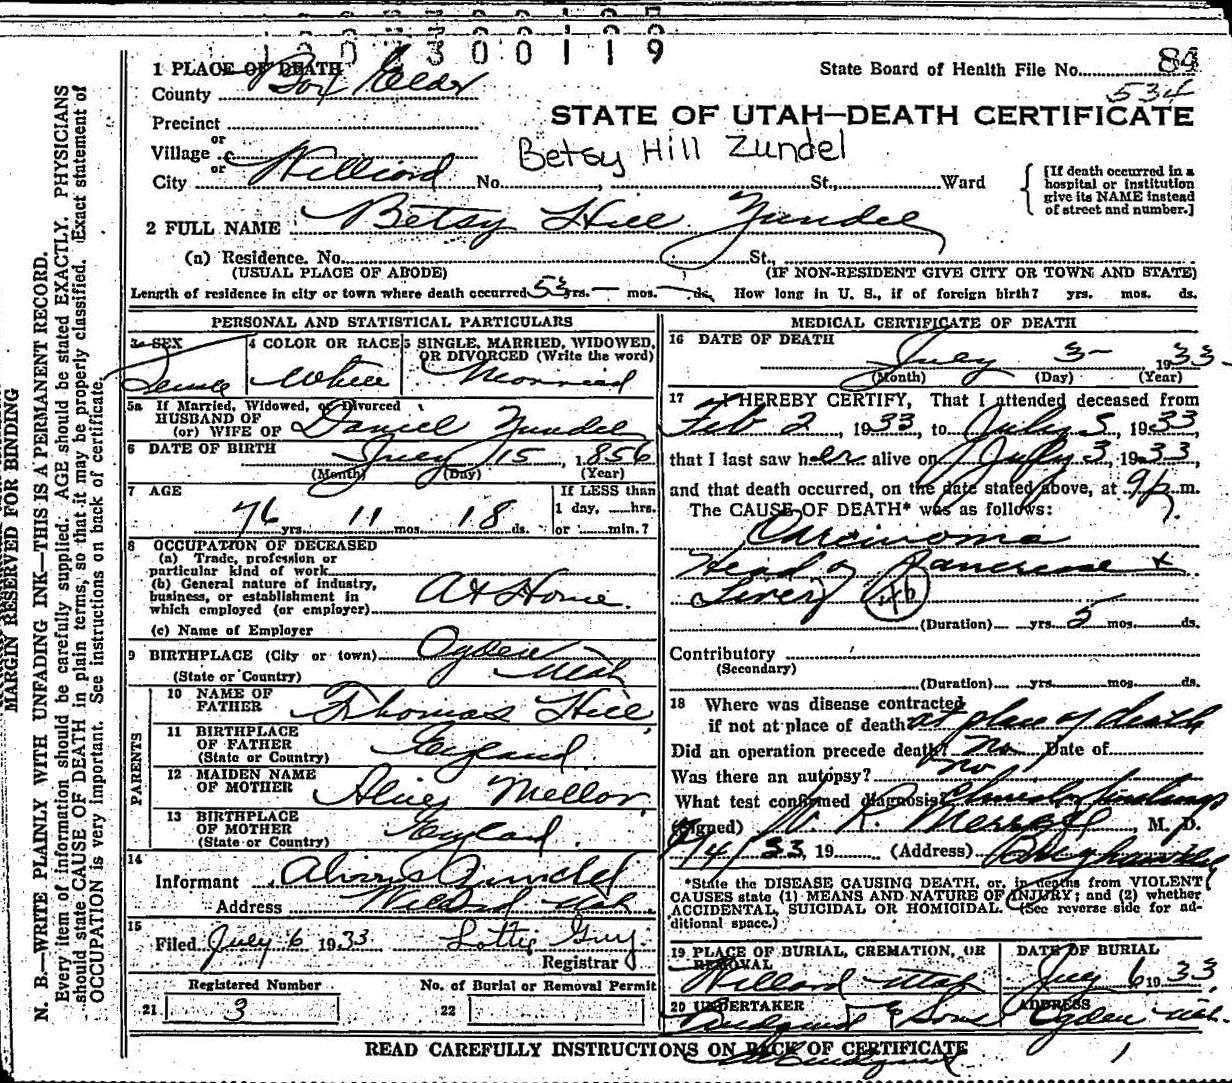 1 0 0 3 0 0 1 1 9
84
State Board of Health File No.
534
1 PLACE OF DEATH
County Box Elder
STATE OF UTAH—DEATH CERTIFICATE
Precinct
or
Village
or
Betsy Hill Zundel
City Willard No. St., Ward
[If death occurred in a hospital or institution give its NAME instead of street and number.]
2 FULL NAME Betsy Hill Zundel
(a) Residence. No. St.,
(USUAL PLACE OF ABODE) (IF NON-RESIDENT GIVE CITY OR TOWN AND STATE)
Length of residence in city or town where death occurred 53 yrs. — mos. — ds. How long in U. S., if of foreign birth? yrs. mos. ds.
PERSONAL AND STATISTICAL PARTICULARS
3 SEX
Female
4 COLOR OR RACE
White
5 SINGLE, MARRIED, WIDOWED,
OR DIVORCED (Write the word)
Married
5a If Married, Widowed, or Divorced
HUSBAND OF
(or) WIFE OF Daniel Zundel
6 DATE OF BIRTH July 15, 1856
(Month) (Day) (Year)
7 AGE
76 yrs. 11 mos. 18 ds.
If LESS than
1 day, ......hrs.
or ......min.?
8 OCCUPATION OF DECEASED
(a) Trade, profession or
particular kind of work
(b) General nature of industry,
business, or establishment in
which employed (or employer) At Home.
(c) Name of Employer
9 BIRTHPLACE (City or town) Ogden
(State or Country) Utah
PARENTS
10 NAME OF
FATHER Thomas Hill
11 BIRTHPLACE
OF FATHER England
(State or Country)
12 MAIDEN NAME
OF MOTHER Mellor
13 BIRTHPLACE
OF MOTHER England
(State or Country)
14
Informant Zundel
Address Willard Utah
15
Filed July 6 1933 Lottie
Registrar
Registered Number
21 3
No. of Burial or Removal Permit
22
MEDICAL CERTIFICATE OF DEATH
16 DATE OF DEATH
July 3- 1933
(Month) (Day) (Year)
17 I HEREBY CERTIFY, That I attended deceased from
Feb 2, 1933, to July 3, 1933,
that I last saw her alive on July 3, 1933,
and that death occurred, on the date stated above, at 9 p. m.
The CAUSE OF DEATH* was as follows:
Carcinoma
Head of Pancreas +
Liver 46
(Duration) yrs. 5 mos. ds.
Contributory
(Secondary)
(Duration) yrs. mos. ds.
18 Where was disease contracted
if not at place of death at place of death
Did an operation precede death? no Date of
Was there an autopsy? no
What test confirmed diagnosis? Clinical findings
(Signed) W. R. Merrell, M. D.
7/4/33, 19 (Address) Brigham
*State the DISEASE CAUSING DEATH, or, in deaths from VIOLENT
CAUSES state (1) MEANS AND NATURE OF INJURY; and (2) whether
ACCIDENTAL, SUICIDAL OR HOMICIDAL. (See reverse side for ad-
ditional space.)
19 PLACE OF BURIAL, CREMATION, OR
REMOVAL
Willard Utah
DATE OF BURIAL
July 6 1933
20 UNDERTAKER
& Sons
ADDRESS
Ogden Utah
READ CAREFULLY INSTRUCTIONS ON BACK OF CERTIFICATE
MARGIN RESERVED FOR BINDING
N. B.—WRITE PLAINLY WITH UNFADING INK—THIS IS A PERMANENT RECORD.
Every item of information should be carefully supplied. AGE should be stated EXACTLY. PHYSICIANS
should state CAUSE OF DEATH in plain terms, so that it may be properly classified. Exact statement of
OCCUPATION is very important. See instructions on back of certificate.